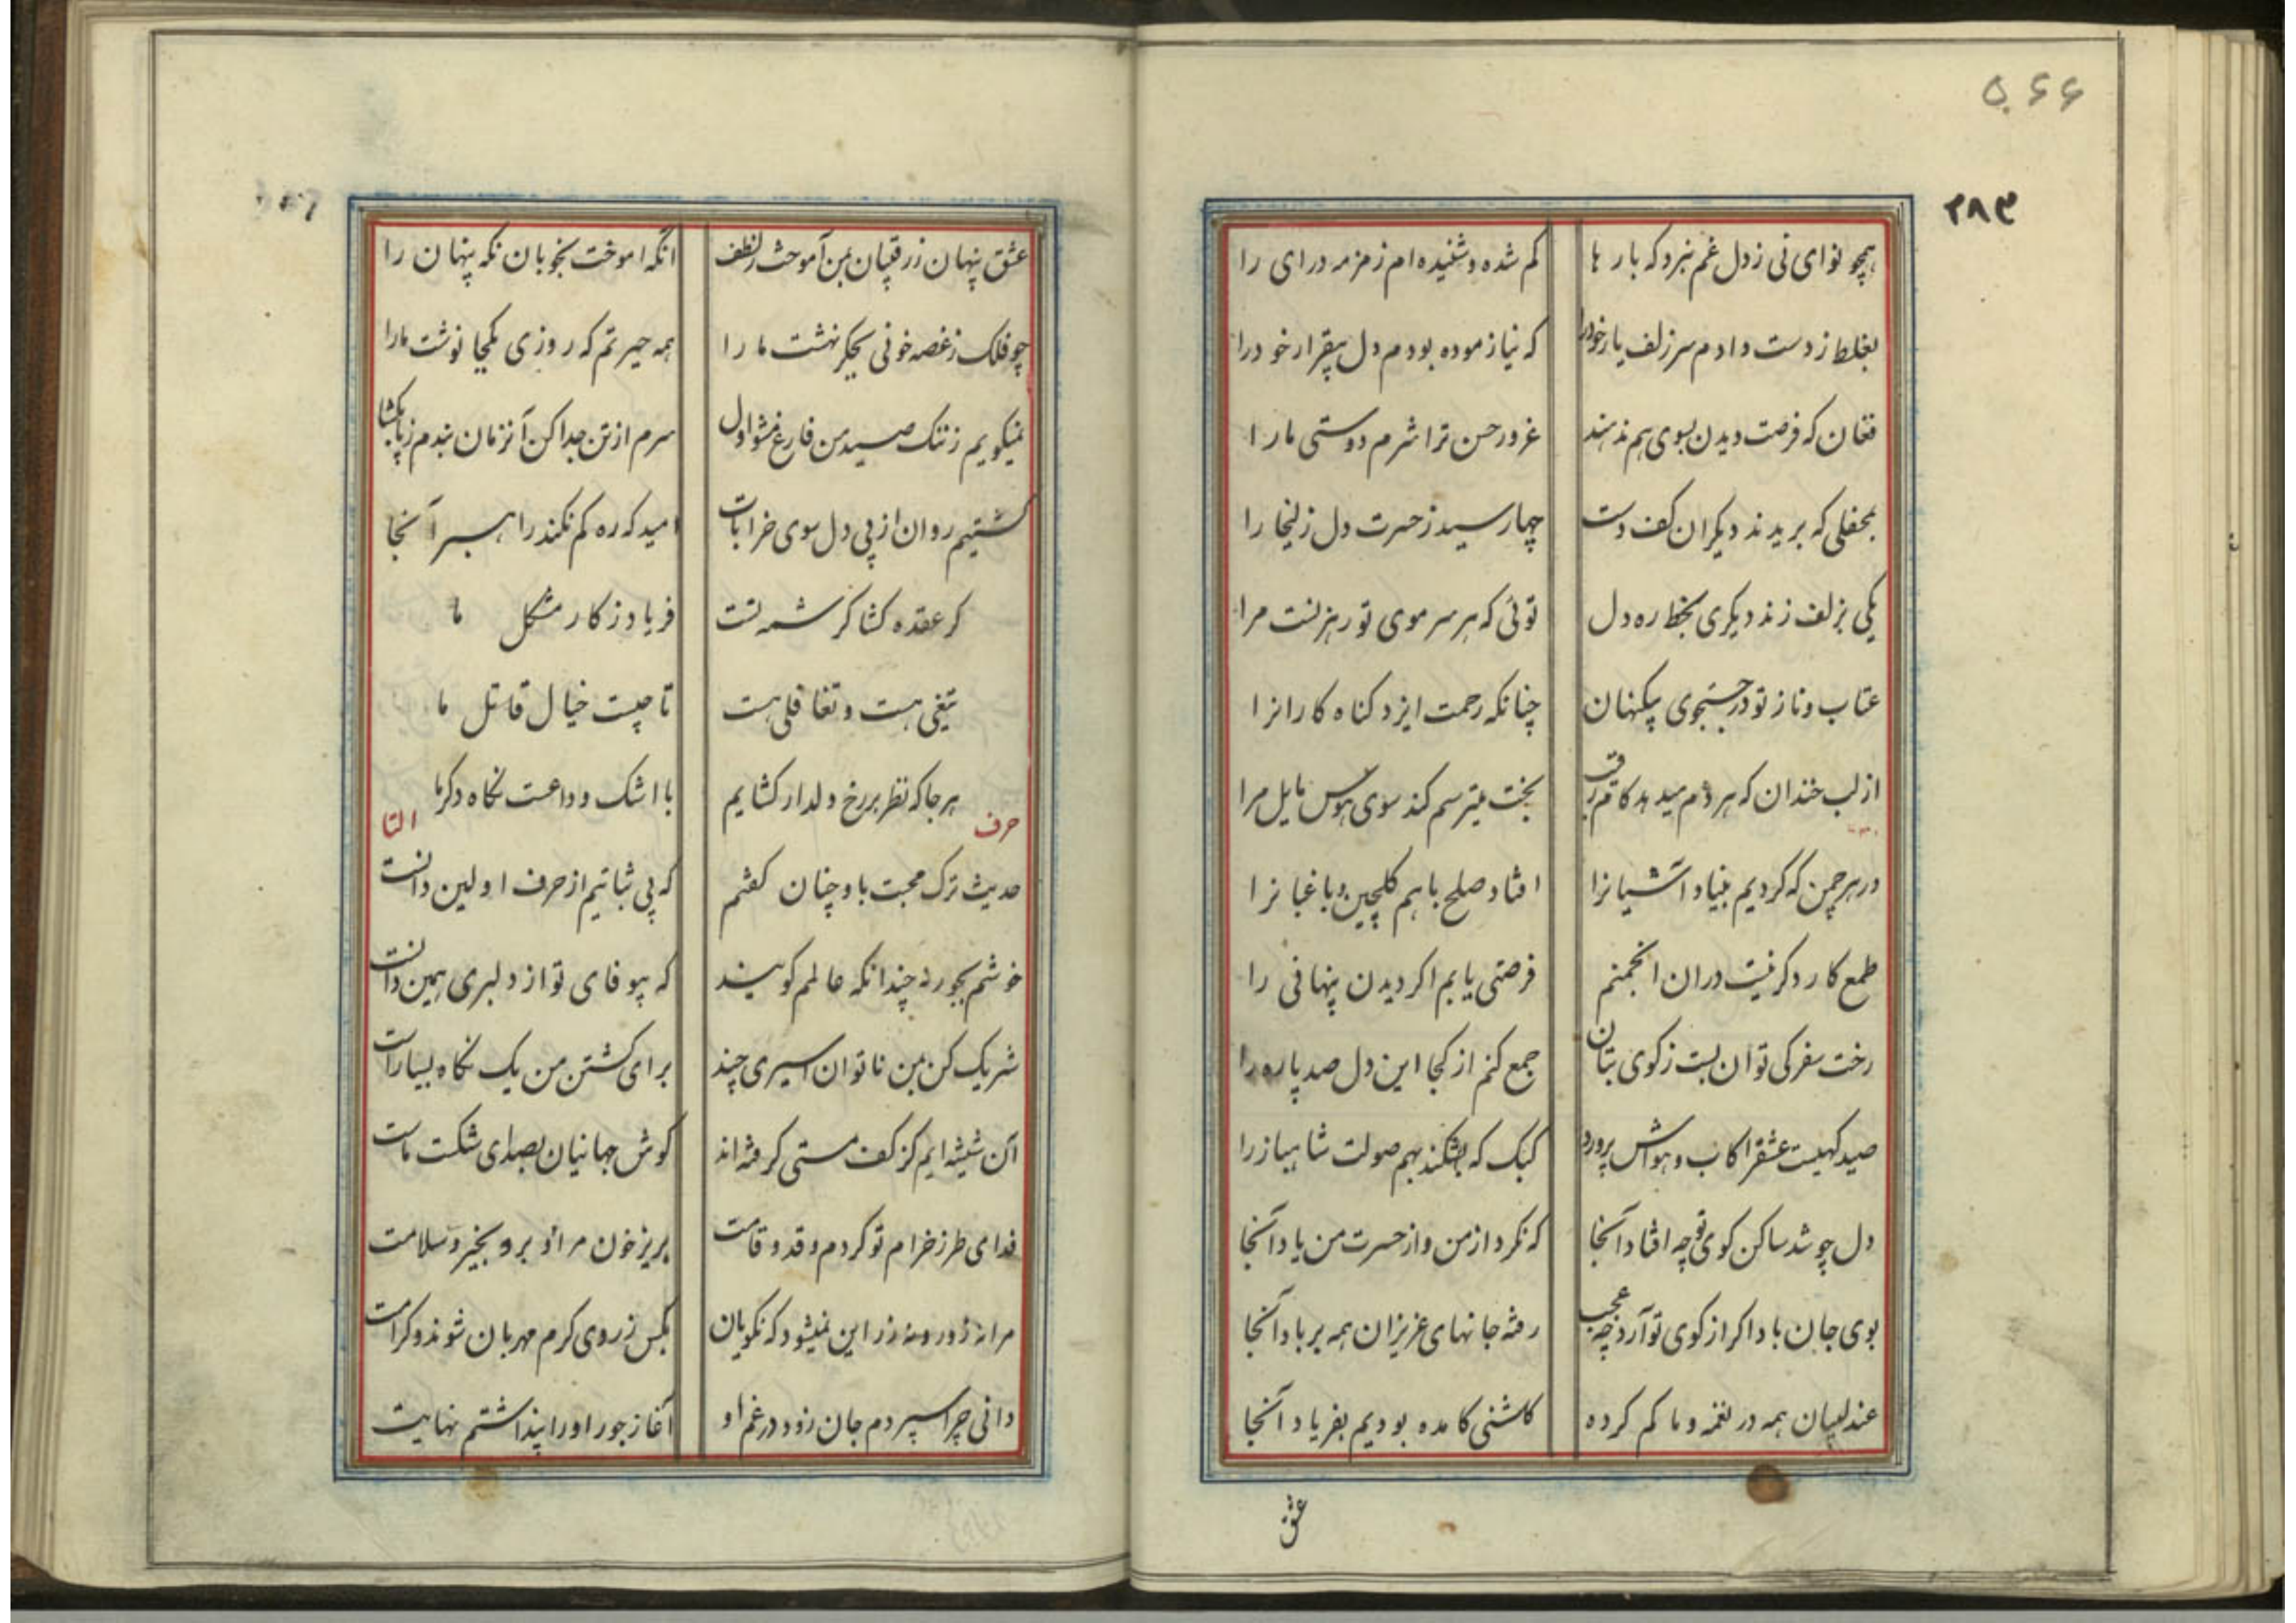 ۵۶۶
۲۸۳
همچو نوای نی ز دل غم نبرد که بار ها کم شده و شنیده ام زمزمه درای را
بغلط ز دست دادم سر زلف یار خود را که نیازموده بودم دل بیقرار خود را
فغان که فرصت دیدن بسوی هم ندهند غرور حسن ترا شرم دوستی ما را
بمحفلی که بریدند دیکران کف دست چها رسید ز حسرت دل زلیخا را
یکی بزلف زند دیکری بخط ره دل توئی که هر سر موی تو رهزنست مرا
عتاب و ناز تو در جستجوی بیکنهان چنانکه رحمت ایزد کناه کارانرا
از لب خندان که هر دم میدهد کام رقیب بخت میترسم کند سوی هوس مایل مرا
در هر چمن که کردیم بنیاد آشیانرا افتاد صلح با هم کلچین و باغبانرا
طمع کار دکر نیست دران انجمنم فرصتی یابم اکر دیدن پنهانی را
رخت سفر کی توان بست ز کوی بتان جمع کنم از کجا این دل صد پاره را
صید کهیست عشقرا کاب و هواش پرورد کبک که بشکند بهم صولت شاهبازرا
دل چو شد ساکن کوی تو چه افتاد آنجا که نکرد از من و از حسرت من یاد آنجا
بوی جان باد اکر از کوی تو آرد چه عجب رفته جانهای عزیزان همه بر باد آنجا
عندلیبان همه در نغمه و ما کم کرده کاشنی کامده بودیم بفریاد آنجا
عشق
عشق پنهان ز رقیبان بمن آموخت ز لطف آنکه اموخت بخوبان نکه پنهان را
چو فلک ز غصه خونی بجکر نهشت ما را همه حیرتم که روزی بکجا نوشت مارا
نمیکویم ز ننک صید من فارغ نشو اول سرم از تن جدا کن آنزمان بندم ز پا بکشا
کشتیم روان از پی دل سوی خرابات امید که ره کم نکند راهبر آنجا
کر عقده کشا کرشمه تست فریاد ز کار مشکل ما
تیغی هست و تغافلی هست تا چیست خیال قاتل ما
هر جا که نظر بر رخ دلدار کشایم با اشک وداعست نکاه دکر ما
حرف التا
حدیث ترک محبت باو چنان کفتم که بی ثباتیم از حرف اولین دانست
خوشم بجور تو چندانکه عالم کویند که بیوفای تو از دلبری همین دانست
شریک کن بمن ناتوان اسیری چند برای کشتن من یک نکاه بسیارست
آن شیشه ایم کز کف مستی کرفته اند کوش جهانیان بصدای شکست ماست
فدای طرز خرام تو کردم و قد و قامت بریز خون مرا و برو بخیر و سلامت
مرا نه زور و نه زر این نمیشود که نکویان بکس ز روی کرم مهربان شوند و کرامت
دانی چرا سپردم جان زود در غم او آغاز جور او را پنداشتم نهایت